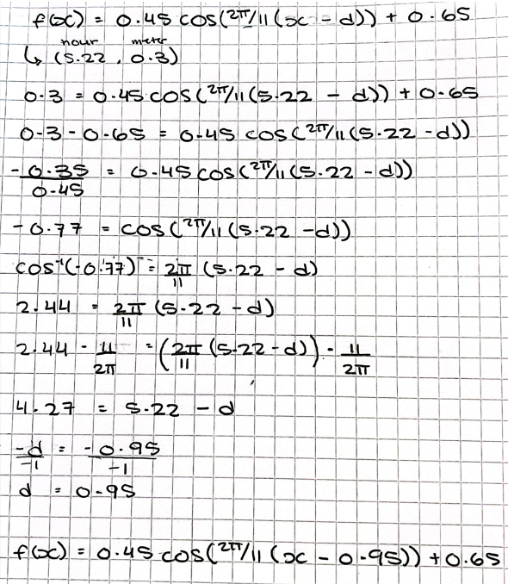 f(x) = 0.45 cos(2π/11(x - d)) + 0.65
hour meter
↳ (5.22, 0.3)
0.3 = 0.45 cos(2π/11(5.22 - d)) + 0.65
0.3 - 0.65 = 0.45 cos(2π/11(5.22 - d))
-0.35/0.45 = 0.45 cos(2π/11(5.22 - d))
-0.77 = cos(2π/11(5.22 - d))
cos⁻¹(-0.77) = 2π/11 (5.22 - d)
2.44 = 2π/11 (5.22 - d)
2.44 · 11/2π = (2π/11 (5.22 - d)) · 11/2π
4.27 = 5.22 - d
-d/-1 = -0.95/-1
d = 0.95
f(x) = 0.45 cos(2π/11(x - 0.95)) + 0.65